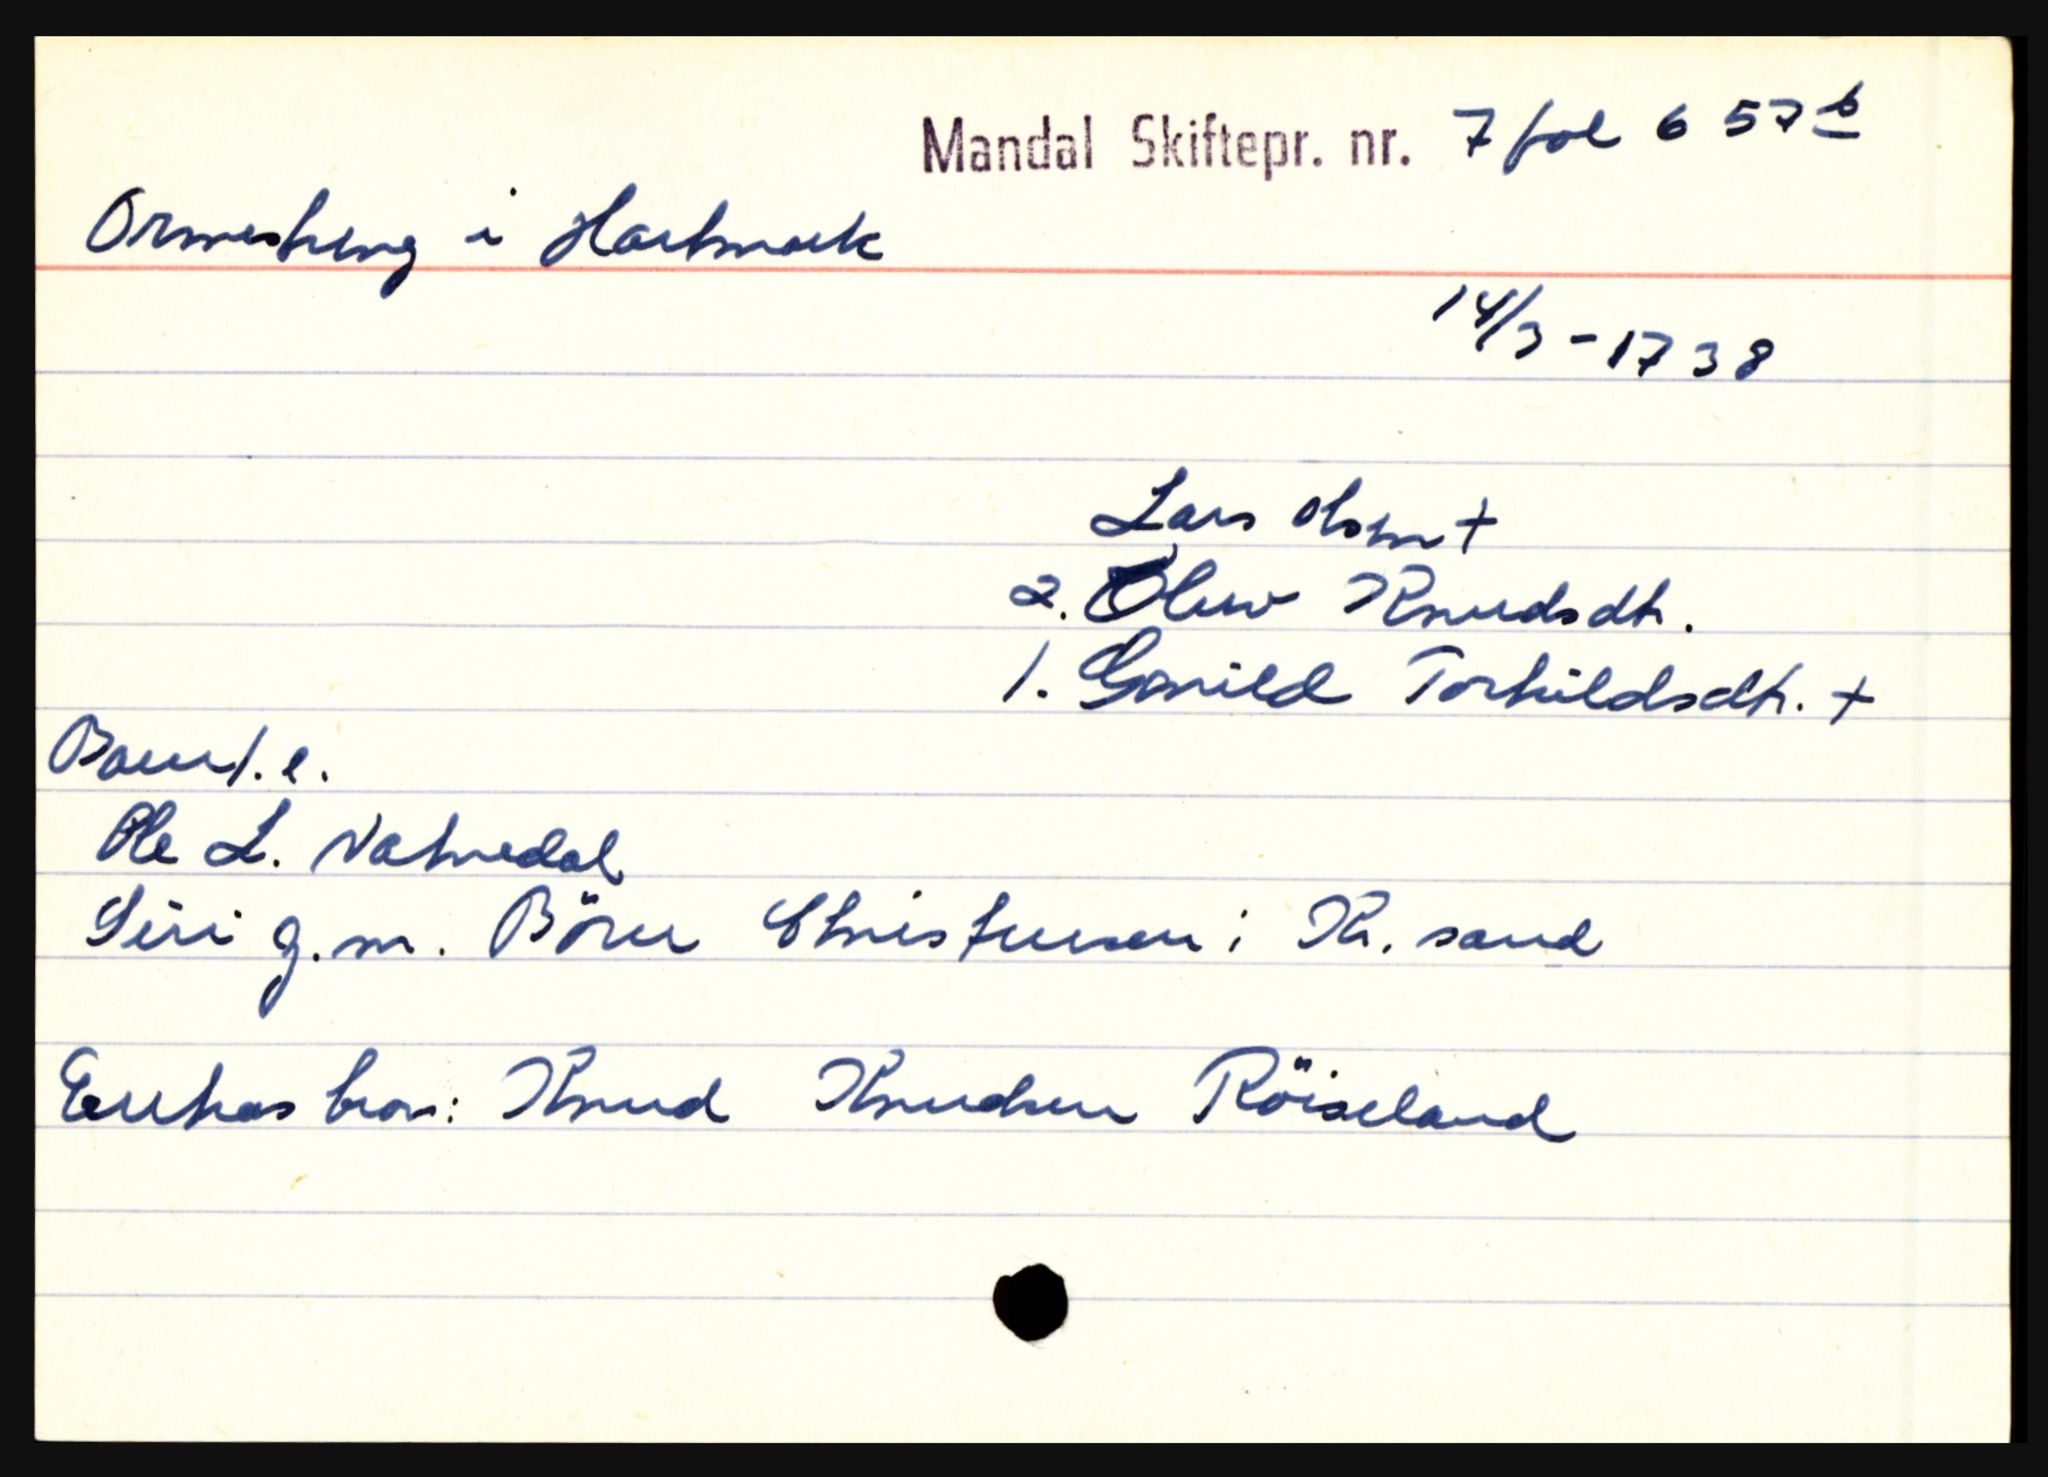 Mandal Skiftepr. nr. 7 fol 657 b
Ormestveng i Hartmark
14/3-1738
Lars Olsen +
2. Oluv Knudsdtr.
1. Gonild Torkildsdtr. +
Barn 1. e.
Ole L. Valvedal
Siri g.m. Bören Christensen i Kr.sand
Enkas bror: Knud Knudsen Röiseland